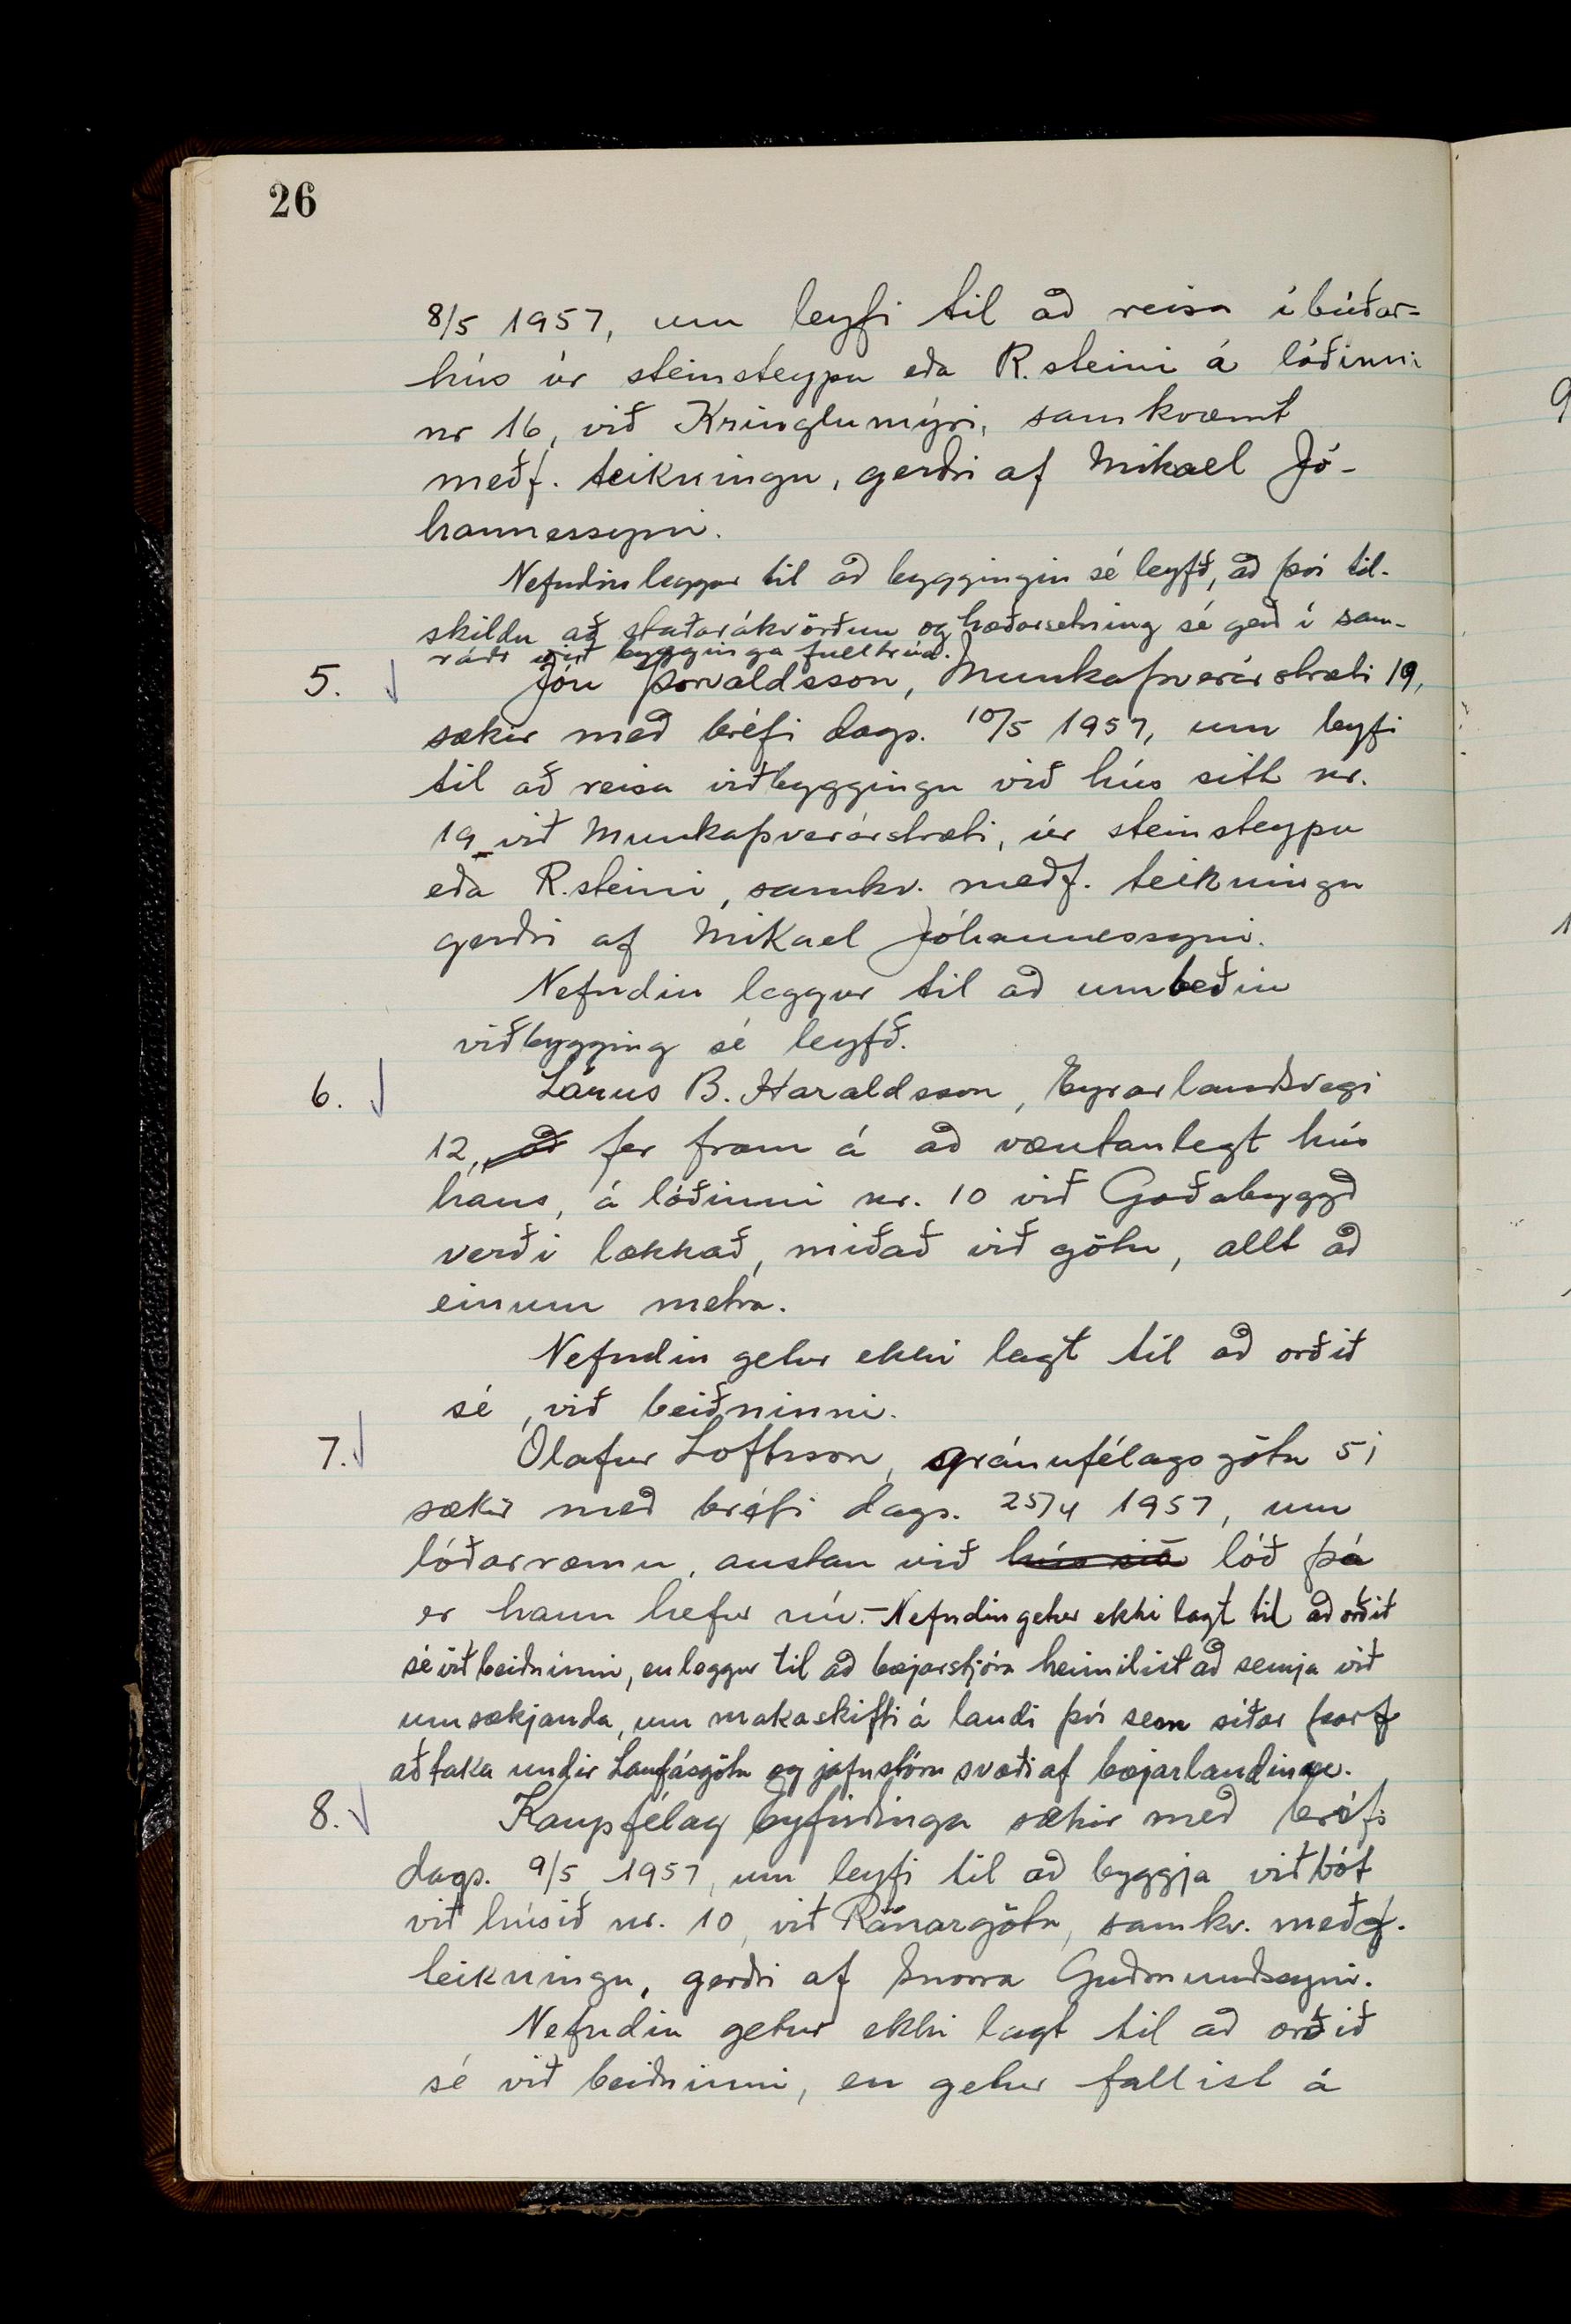 26
8/5 1957, um leyfi til að reisa íbúðar=
hús úr steinsteypu eða R.steini á lóðinni
nr 16, við Kringlumýri, samkvæmt
meðf. teikningu, gerðri af Mikael Jó-
hannessyni.
Nefndin leggur til að byggingin sé leyfð, að því til-
skildu að staðarákvörðun og hæðarsetning sé gerð í sam-
ráði við bygginga fulltrúa.
5. Jón Þorvaldsson, Munkaþverárstræti 19,
sækir með bréfi dags. 10/5 1957, um leyfi
til að reisa viðbyggingu við hús sitt nr.
19 við Munkaþverárstræti, úr steinsteypu
eða R.steini, samkv. meðf. teikningu
gerðri af Mikael Jóhannessyni.
Nefndin leggur til að umbeðin
viðbygging sé leyfð.
6. Lárus B. Haraldsson, Eyrarlandsvegi
12, að fer fram á að væntanlegt hús
hans, á lóðinni nr. 10 við Goðabyggð
verði lækkað, miðað við götu, allt að
einum metra.
Nefndin getur ekki lagt til að orðið
sé, við beiðninni.
7. Ólafur Loftsson, Gránufélagsgötu 5i
sækir með bréfi dags. 25/4 1957, um
lóðarræmu, austan við hús sið lóð þá
er hann hefur nú.- Nefndin getur ekki lagt til að orðið
sé við beiðninni, en leggur til að bæjarstjóra heimilist að semja við
umsækjanda, um makaskifti á landi því sem síðar þarf
að taka undir Laufásgötu og jafnstóru svæði af bæjarlandinu.
8. Kaupfélag Eyfirðinga sækir með bréfi
dags. 9/5 1957, um leyfi til að byggja viðbót
við húsið nr. 10, við Ránargötu, samkv. meðf.
teikningu, gerðri af Snorra Guðmundssyni.
Nefndin getur ekki lagt til að orðið
sé við beiðninni, en getur fallist á